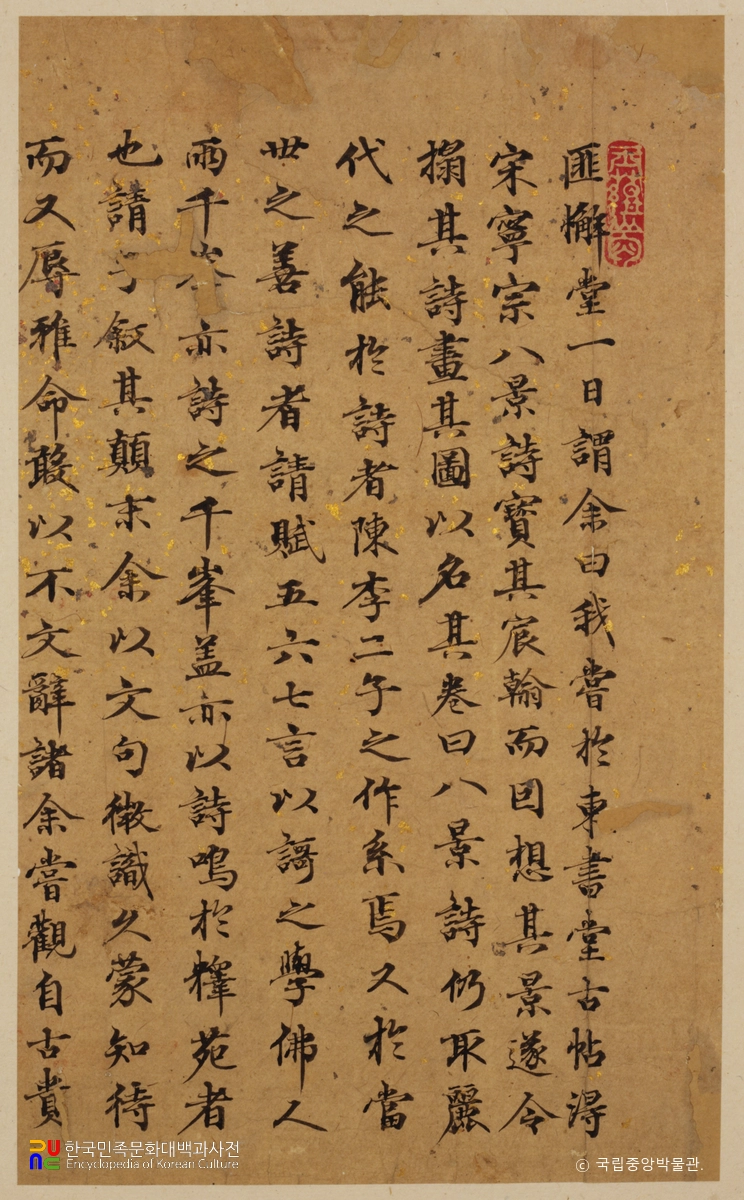 匪懈堂一日謂余曰我嘗於東書堂古帖淂
宋寧宗八景詩寶其宸翰而因想其景遂令
搨其詩畫其圖以名其卷曰八景詩仍取麗
代之能於詩者陳李二子之作系焉又於當
世之善詩者請賦五六七言以謌之學佛人
雨千峯亦詩之千峯盖亦以詩鳴於釋苑者
也請 敍其顛末余以文句微識久蒙知待
而又辱雅命敢以不文辭諸余嘗觀自古貴
한국민족문화대백과사전
Encyclopedia of Korean Culture
ⓒ 국립중앙박물관.